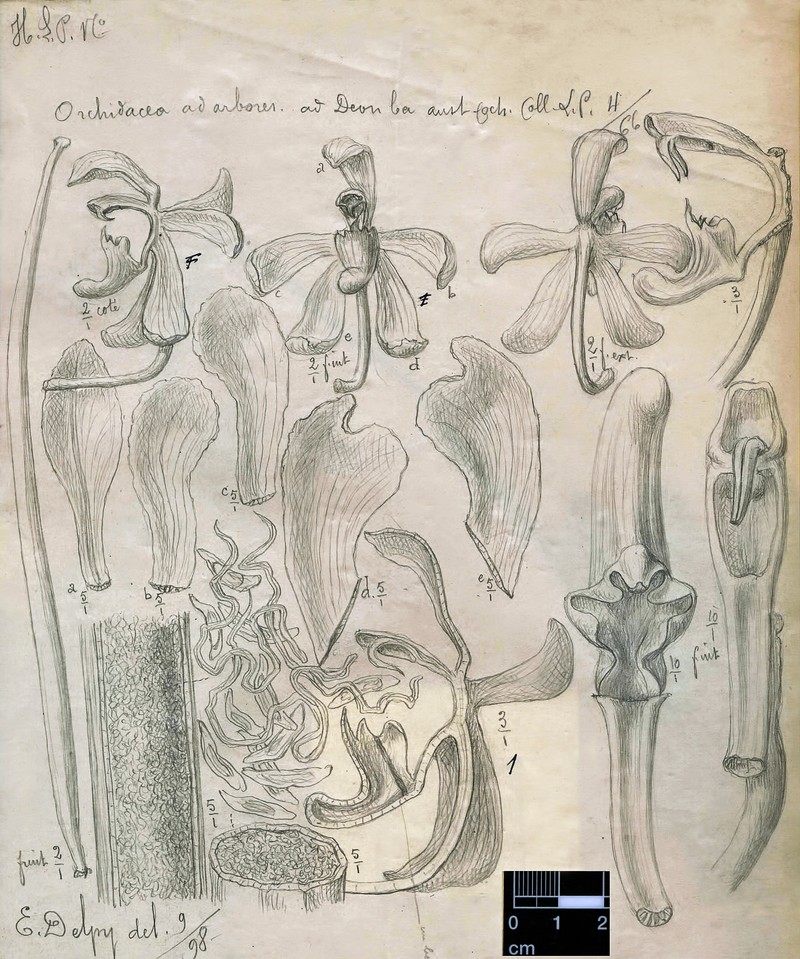 H. L. P. No
Orchidacea ad arbores. ad Deon ba aust Coch. Coll. L. P. 4/66
a
F
c
b
e
d
2/1 coté
2/1 f. int
2/1 f. ext.
3/1
a 5/1
b 5/1
c 5/1
d. 5/1
e 5/1
10/1 f int
10/1
3/1
1
5/1
5/1
fruit 2/1
E. Delpy del. 9/98
0 1 2
cm